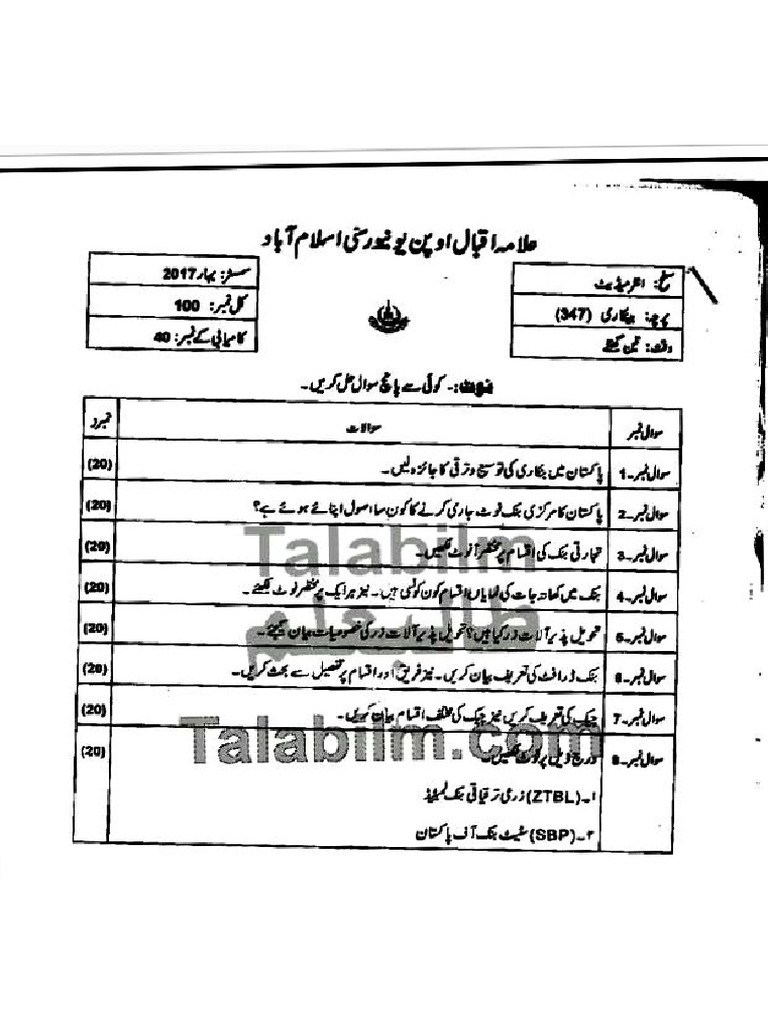 علامہ اقبال اوپن یونیورسٹی اسلام آباد
سطح: انٹرمیڈیٹ
پرچہ: بینکاری (347)
وقت: تین گھنٹے
سمسٹر: بہار 2017
کل نمبر: 100
کامیابی کے نمبر: 40
نوٹ:۔ کوئی سے پانچ سوال حل کریں۔
سوال نمبر سوالات نمبرز
سوال نمبر۔1 پاکستان میں بینکاری کی توسیع و ترقی کا جائزہ لیں۔ (20)
سوال نمبر۔2 پاکستان کا مرکزی بنک نوٹ جاری کرنے کا کون سا اصول اپنائے ہوئے ہے؟ (20)
سوال نمبر۔3 تجارتی بنک کی اقسام پر مختصراً نوٹ لکھیں۔ (20)
Talabilm
سوال نمبر۔4 بنک میں کھاتہ جات کی نمایاں اقسام کون کونسی ہیں۔ نیز ہر ایک پر مختصر نوٹ لکھیئے۔ (20)
طالبعلم
سوال نمبر۔5 تحویل پذیر آلات زر کیا ہیں؟ تحویل پذیر آلات زر کی خصوصیات بیان کیجئے۔ (20)
سوال نمبر۔6 بنک ڈرافٹ کی تعریف بیان کریں۔ نیز فریق اور اقسام پر تفصیل سے بحث کریں۔ (20)
سوال نمبر۔7 چیک کی تعریف کریں نیز چیک کی مختلف اقسام بیان کریں۔ (20)
Talabilm.com
سوال نمبر۔8 درج ذیل پر نوٹ لکھیں۔ (20)
۱۔ (ZTBL) زرعی ترقیاتی بنک لمیٹیڈ
۲۔ (SBP) سٹیٹ بنک آف پاکستان